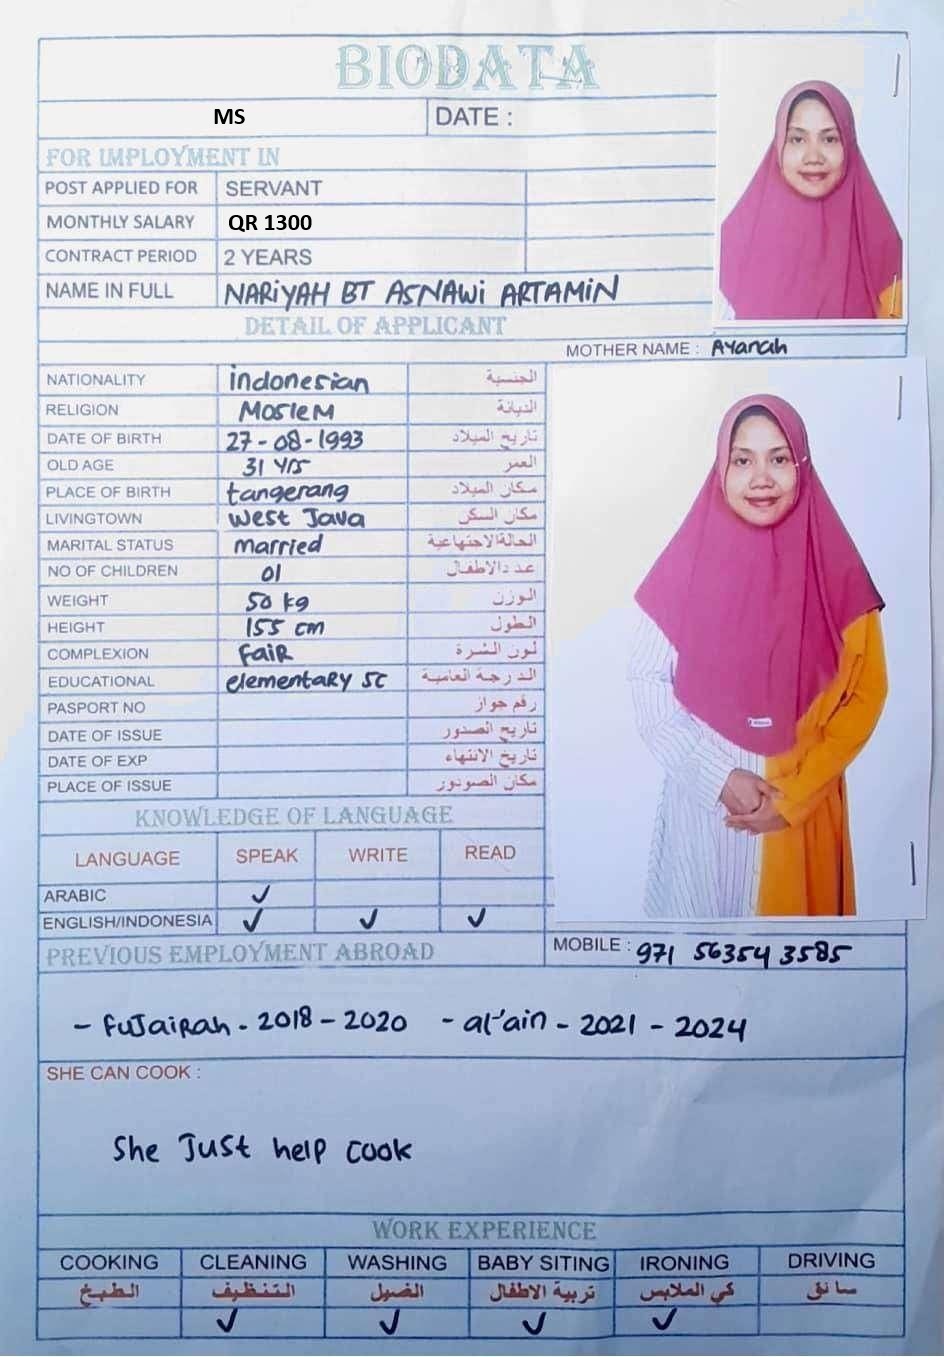 BIODATA
MS DATE :
FOR IMPLOYMENT IN
POST APPLIED FOR SERVANT
MONTHLY SALARY QR 1300
CONTRACT PERIOD 2 YEARS
NAME IN FULL NARIYAH BT ASNAWI ARTAMIN
DETAIL OF APPLICANT
MOTHER NAME : Ayanah
NATIONALITY indonesian الجنسية
RELIGION MosleM الديانة
DATE OF BIRTH 27-08-1993 تاريخ الميلاد
OLD AGE 31 yrs العمر
PLACE OF BIRTH tangerang مكان الميلاد
LIVINGTOWN West Java مكان السكن
MARITAL STATUS married الحالةالاجتهاعية
NO OF CHILDREN 01 عددالاطفال
WEIGHT 50 kg الوزن
HEIGHT 155 cm الطول
COMPLEXION FaiR لون الشرة
EDUCATIONAL elementaRy SC الدرجة العامية
PASPORT NO رقم جواز
DATE OF ISSUE تاريخ الصدور
DATE OF EXP تاريخ الانتهاء
PLACE OF ISSUE مكان
KNOWLEDGE OF LANGUAGE
LANGUAGE SPEAK WRITE READ
ARABIC ✓
ENGLISH/INDONESIA ✓ ✓ ✓
PREVIOUS EMPLOYMENT ABROAD
MOBILE : 971 56354 3585
- Fujairah - 2018 - 2020 - al'ain - 2021 - 2024
SHE CAN COOK :
She Just help cook
WORK EXPERIENCE
COOKING CLEANING WASHING BABY SITING IRONING DRIVING
الطبخ التنظيف الغسيل تربية الاطفال كي الملابس سائق
✓ ✓ ✓ ✓